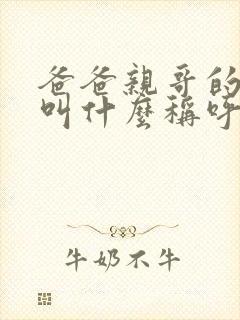 爸爸親哥的
叫什麼稱呼
牛奶不牛